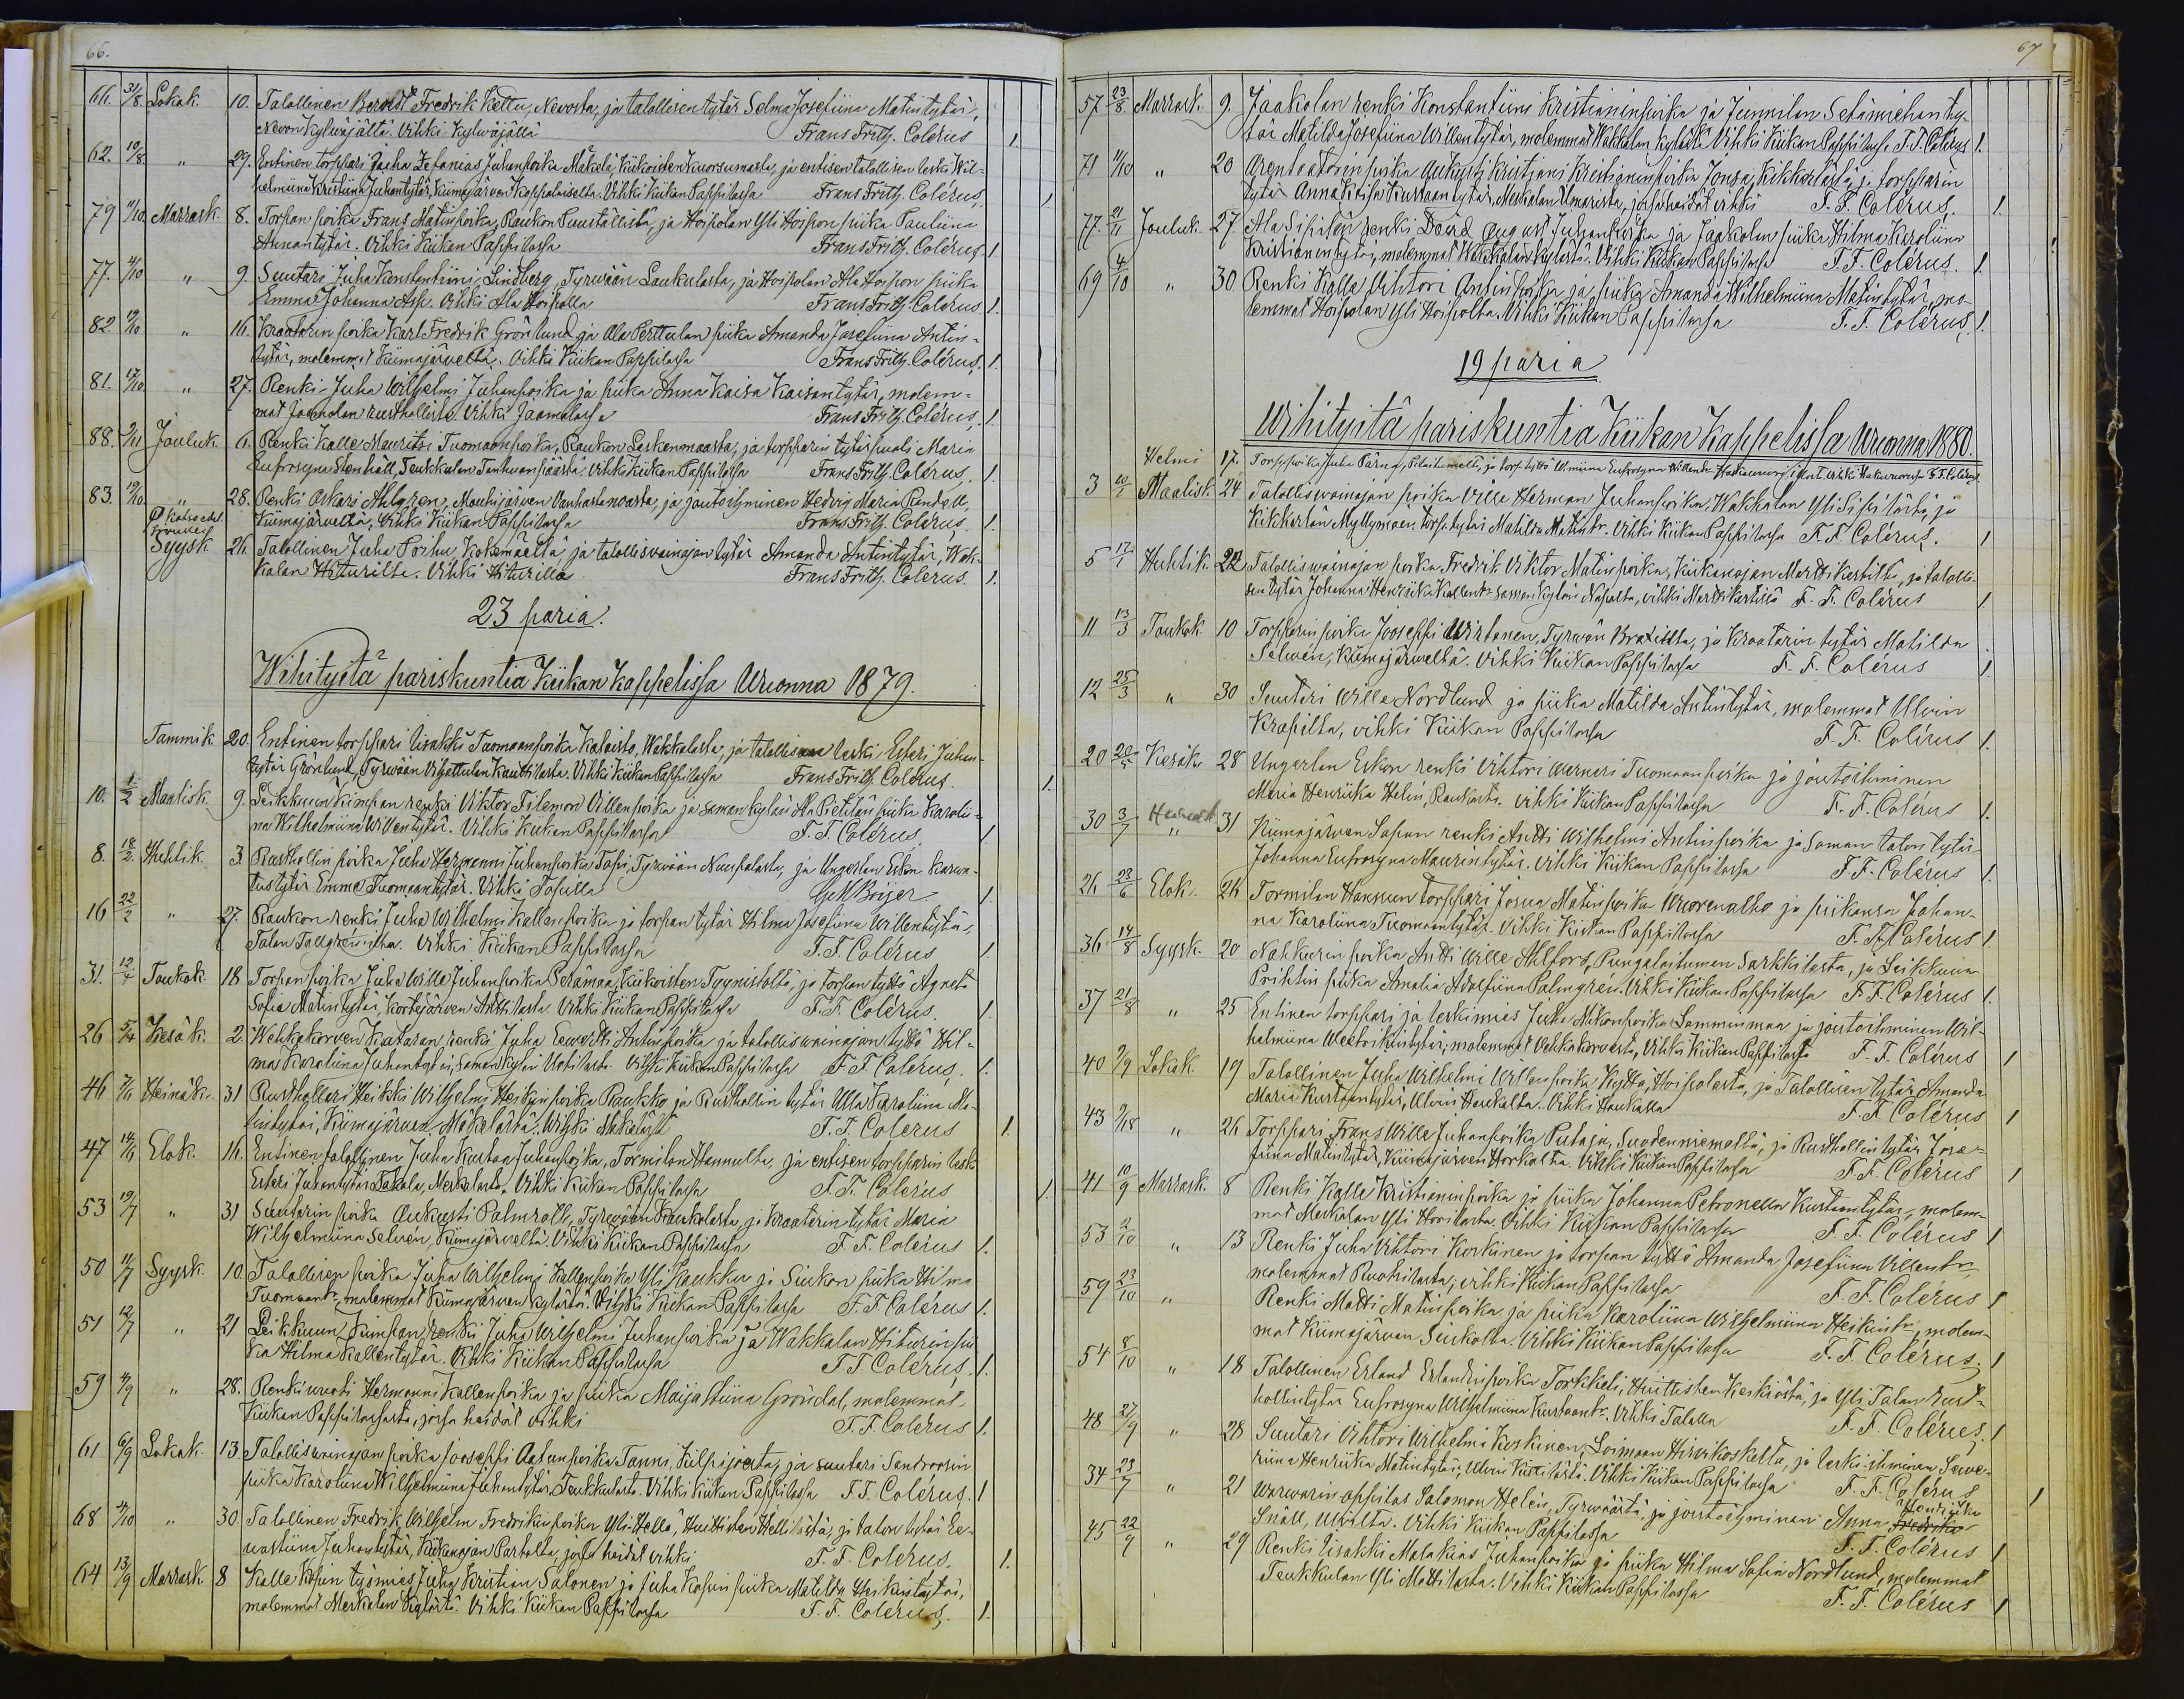 66.
66. 31/8. Lokak. 10. Talollinen Berndt Fredrik Kettu, Nevosta, ja talollisen tytär Selma Josefiina Matintytär,
Nevon Kylwäjältä. Vihki Kylwäjällä Frans Frith. Colérus 1.
62. 10/8. " 29. Entinen torppari Jaska Zefanias Juhanpoika Mäkelä, Kiikoisten Kuorsumaasta, ja entisen talollisen leski Wil-
helmiina Kristiina Juhantytär, Kiimajärven . Vihki Kiikan Pappilassa Frans Frith. Colérus, 1
79 4/10. Marrask. 8. Torpan poika Frans Matinpoika, Raukon , ja Hoipolan Yli Hoipon piika Pauliina
Annantytär. Vihki Kiikan Pappilassa Frans Frith. Colérus, 1
77. 4/10 " 9. Suutari Juha Konstantiini Lindberg, Tyrwään Laukulasta, ja Hoipolan Ala Hoipon piika
Emma Johanna Asp. Vihki Ala Hoipolla Frans Frith. Colérus 1.
82 19/10 " 16. Kraatarin poika Karl Fredrik Grönlund ja Ala Perttulan piika Amanda Josefiina Antin-
tytär, molemmat Kiimajärveltä. Vihki Kiikan Pappilassa Frans Frith. Colérus, 1.
81. 17/10. " 27. Renki Juha Wilhelmi Juhanpoika ja piika Anna Kaisa Kaisantytär, molem-
mat Jaamalan rusthollista. Vihki Jaamalassa Frans Frith. Colérus, 1.
88. 9/11 Jouluk. 6. Renki Kalle Mauritsi Tuomaanpoika, Raukon , ja torpparin tytärpuoli Maria
Eufrosyna Stenhäll, Teukkulan . Vihki Kiikan Pappilassa Frans Frith. Colérus, 1.
83. 19/10. " 28. Renki Oskari Ahlgren, Mouhijärven , ja joutoihminen Hedvig Maria Randell,
Kiimajärveltä. Vihki Kiikan Pappilassa Frans Frith. Colérus, 1.
Syysk 26. Talollinen Juha Prihu, Kokemäeltä ja talollisvainajan tytär Amanda Antintytär, Wak-
kalan Hiturilta. Vihki Hiturilla Frans Frith. Colérus. 1.
23 paria.
Wihityitä pariskuntia Kiikan Kappelissa Wuonna 1879.
Tammik 20. Entinen torppari Iisakki Tuomaanpoika Kaloisto, Wakkalasta, ja talollisen leski Esteri Juhan-
tytär Grönlund, Tyrwään . Vihki Kiikan Pappilassa Frans Frith. Colérus. 1.
10. 1/2 Maalisk 9. Leikkuun Kimpan renki Viktor Filemon Villenpoika ja saman kylän Ala Pietilän piika Karoli-
na Wilhelmiina Willentytär. Vihki Kiikan Pappilassa F. F. Colérus 1
8. 18/2. Huhtik. 3. Rusthollin poika Juha Hermanni Juhanpoika Topi, Tyrwään Nuupalasta, ja Ungerlan Eskon kasva-
tustytär Emma Tuomaantytär. Vihki Topilla 1
16 22/2 " 27. Raukon renki Juha Wilhelmi Kallenpoika ja torpan tytär Hilma Josefiina Willentytär,
Talan . Vihki Kiikan Pappilassa F. F. Colérus 1.
31. 12/4 Toukok. 18 Torpan poika Juha Wille Juhanpoika Perämaa, Kiikoisten , ja torpan tyttö Agneta
Sofia Matintytär, Kortejärven Anttilasta Vihki Kiikan Pappilassa F. F. Colérus. 1.
26 5/4 Kesäk. 2. Wehkakorven Kaataran renki Juha Eewertti Antinpoika ja talollisvainajan tyttö Hil-
ma Karoliina Juhantytär, saman kylän Uotilasta. Vihki Kiikan Pappilassa F. F. Colérus, 1.
46 Heinäk. 31 Rusthollari Heikki Wilhelmi Heikinpoika Raukko ja Rusthollin tytär Ulla Karoliina Ma-
tintytär, Kiimajärven Mäkelästä. Wihki Mäkelässä F. F. Colérus 1.
47 Elok. 16. Entinen talollinen Juha Kustaa Juhanpoika, Tormilan Hannulta, ja entisen torpparin leski
Esteri Juhantytär Takala, Meskalasta. Vihki Kiikan Pappilassa F. F. Colérus 1.
53 19/7 " 31 Suutarin poika Aukusti Palmroth, Tyrwään Kaukolasta, ja kraatarin tytär Maria
Wilhelmiina Selven, Kiimajärveltä. Vihki Kiikan Pappilassa F. F. Colérus 1.
50 11/7 Syysk. 10. Talollisen poika Juha Wilhelmi Kallenpoika Yli Kaukku ja Siukon piika Hilma
Tuomaantr, molemmat Kiimajärven kylästä. Vihki Kiikan Pappilassa F. F. Colérus 1.
51 12/7 " 21 Leikkuun Kimpan renki Juha Wilhelmi Juhanpoika ja Wakkalan Hiturin pii-
ka Hilma Kallentytär. Vihki Kiikan Pappilassa F. F. Colérus, 1.
59 4/9 " 28. Renkivouti Hermanni Kallenpoika ja piika Maija Stiina Gröndal, molemmat
Kiikan Pappilasta, jossa heidät vihki F. F. Colérus 1.
61 6/9 Lokak. 13. Talollisvainajan poika Jooseppi Aatunpoika Tanni, , ja suutari
piika Karoliina Wilhelmiina Juhantytär, Teukkulasta. Vihki Kiikan Pappilassa F. F. Colérus. 1
68 4/10 " 30. Talollinen Fredrik Wilhelm Fredrikinpoika Yli-Hellä, Huittisten Hellilästä, ja talon tytär Ee-
vastiina Juhantytär, Kiikanojan Partolta, jossa heidät vihki F. F. Colérus. 1.
64 13/9 Marrask. 8 Kalle Kopin työmies Juha Kristian Salonen ja Juha Kopin piika Matilda Yrikintytär,
molemmat Merkalan Kylästä. Vihki Kiikan Pappilassa F. F. Colérus, 1.
67
57 23/8. Marrask. 9. Jaakolan renki Konstantiini Kristianinpoika ja Junnilan Setämiehen ty-
tär Matilda Josefiina Willentytär, molemmat Wakkalan kylästä. Vihki Kiikan Pappilassa F. F. Colérus 1.
71 11/10 " 20 Arentaatorin poika Aukusti Kristjani Kristianinpoika Jonsa, Kikkerlästä, ja torpparin
tytär Anna Kaisa Kustaantytär, Meskalan , jossa heidät vihki F. F. Colérus. 1.
77. 21/11 Jouluk. 27. Ala Sipilän renki David August Juhanpoika ja Jaakolan piika Hilma Karoliina
Kristianintytär, molemmat Wakkalan kylästä. Vihki Kiikan Pappilassa F. F. Colérus. 1.
69 4/10 " 30 Renki Kalle Vihtori Antinpoika ja piika Amanda Wilhelmiina Matintytär, mo-
lemmat Hoipolan Yli Hoipolta. Vihki Kiikan Pappilassa F. F. Colérus, 1.
19 paria
Wihityitä pariskuntia Kiikan Kappelissa Wuonna 1880.
Helmi 17. Torp. poika Juha Pärnä, , ja torp. tyttö Wimiina Eufrosyna . Vihki F. F. Colérus.
3 Maalisk. 24 Talollisvainajan poika Ville Herman Juhanpoika, Wakkalan Yli Sipilästä, ja
Kikkerlän Myllymäen torp. tytär Matilda Matintr. Vihki Kiikan Pappilassa F. F. Colérus. 1
5 17/1 Huhtik. 22 Talollisvainajan poika Fredrik Viktor Matinpoika, Kiikanojan Marttikertilta, ja talolli-
sen tytär Johanna Henriika Kallentr saman kylän Napalta, vihki Marttikertissä F. F. Colérus 1.
11 13/3 Toukok. 10 Torpparin poika Jooseppi Wirtanen, Tyrwään , ja Kraatarin tytär Matilda
Selwén, Kiimajärveltä. Vihki Kiikan Pappilassa F. F. Colérus 1.
12 25/3 " 30 Suutari Wille Nordlund ja piika Matilda Antintytär, molemmat Ulvin
Krapilta, vihki Kiikan Pappilassa F. F. Colérus 1.
20 Kesäk 28 Ungerlan Eskon renki Vihtori Werneri Tuomaanpoika ja joutoihminen
Maria Henriika Helin, Raukosta. Vihki Kiikan Pappilassa F. F. Colérus 1.
30 3/7 " 31 Kiimajärven Sapan renki Antti Wilhelmi Antinpoika ja saman talon tytär
Johanna Eufrosyna Maurintytär. Vihki Kiikan Pappilassa F. F. Colérus 1.
26 23/6 Elok. 26 Tormilan Hannun torppari Josua Matinpoika Wuorenalho ja piikansa Johan-
na Karoliina Tuomaantytär. Vihki Kiikan Pappilassa F. F. Colérus 1.
36 14/8 Syysk. 20 Nahkurin poika Antti Wille Ahlfors, Pungalaitumen Sarkkilasta, ja Leikkuun
Prihtin piika Amalia Adolfiina Palmgrén. Vihki Kiikan Pappilassa F. F. Colérus 1.
37 21/8 " 25 Entinen torppari ja leskimies Juha Mikonpoika Samminmaa ja joutoihminen Wil-
helmiina , molemmat Vehkakorvesta, Vihki Kiikan Pappilassa F. F. Colérus 1
40 9/9 Lokak. 19 Talollinen Juha Wilhelmi Willenpoika Kyttä, Hoipolasta, ja Talollisen tytär Amanda
Maria Kustaantytär, Ulvin Haukalta. Vihki Haukalla F. F. Colérus 1
43 " 26 Torppari Frans Wille Juhanpoika Putaja, Suodenniemeltä, ja Rusthollin tytär Jose-
fiina Matintytär, Kiimajärven Horkalta. Vihki Kiikan Pappilassa F. F. Colérus 1
41 10/9 Marrask. 8 Renki Kalle Kristianinpoika ja piika Johanna Petronella Kustaantytär, molem-
mat Meskalan Yli . Vihki Kiikan Pappilassa F. F. Colérus 1
53 2/10 " 13 Renki Juha Vihtori Korkinen ja torpan tyttö Amanda Josefiina Villentr,
molemmat Ruotsilasta; vihki Kiikan Pappilassa F. F. Colérus 1
59 23/10 " Renki Matti Matinpoika ja piika Karoliina Wilhelmiina Heikintr, molem-
mat Kiimajärven Siukolta. Vihki Kiikan Pappilassa F. F. Colérus; 1
54 8/10 " 18 Talollinen Erland Erlandinpoika Torkkeli, Huittisten Keikiöstä, ja Yli Talan Rust-
hollin tytär Eufrosyna Wilhelmiina Kustaantr. Vihki Talalla F. F. Colérus, 1
48 27/9 " 28 Suutari Vihtori Wilhelmi Koskinen, Loimaan Hirvikoskelta, ja leski-ihminen Seve-
riina Henriika Matintytär, Ulvin . Vihki Kiikan Pappilassa F. F. Colérus 1
34 23/7 " 21 Warwarin oppilas Salomon Helén, Tyrwäästä, ja joutoihminen Anna Fredrika Henriika
Snäll, Ulvilta. Vihki Kiikan Pappilassa F. F. Colérus 1
45 22/9 " 29 Renki Iisakki Malakias Juhanpoika ja piika Hilma Sofia Nordlund, molemmat
Teukkulan Yli Mattilasta. Vihki Kiikan Pappilassa F. F. Colérus 1